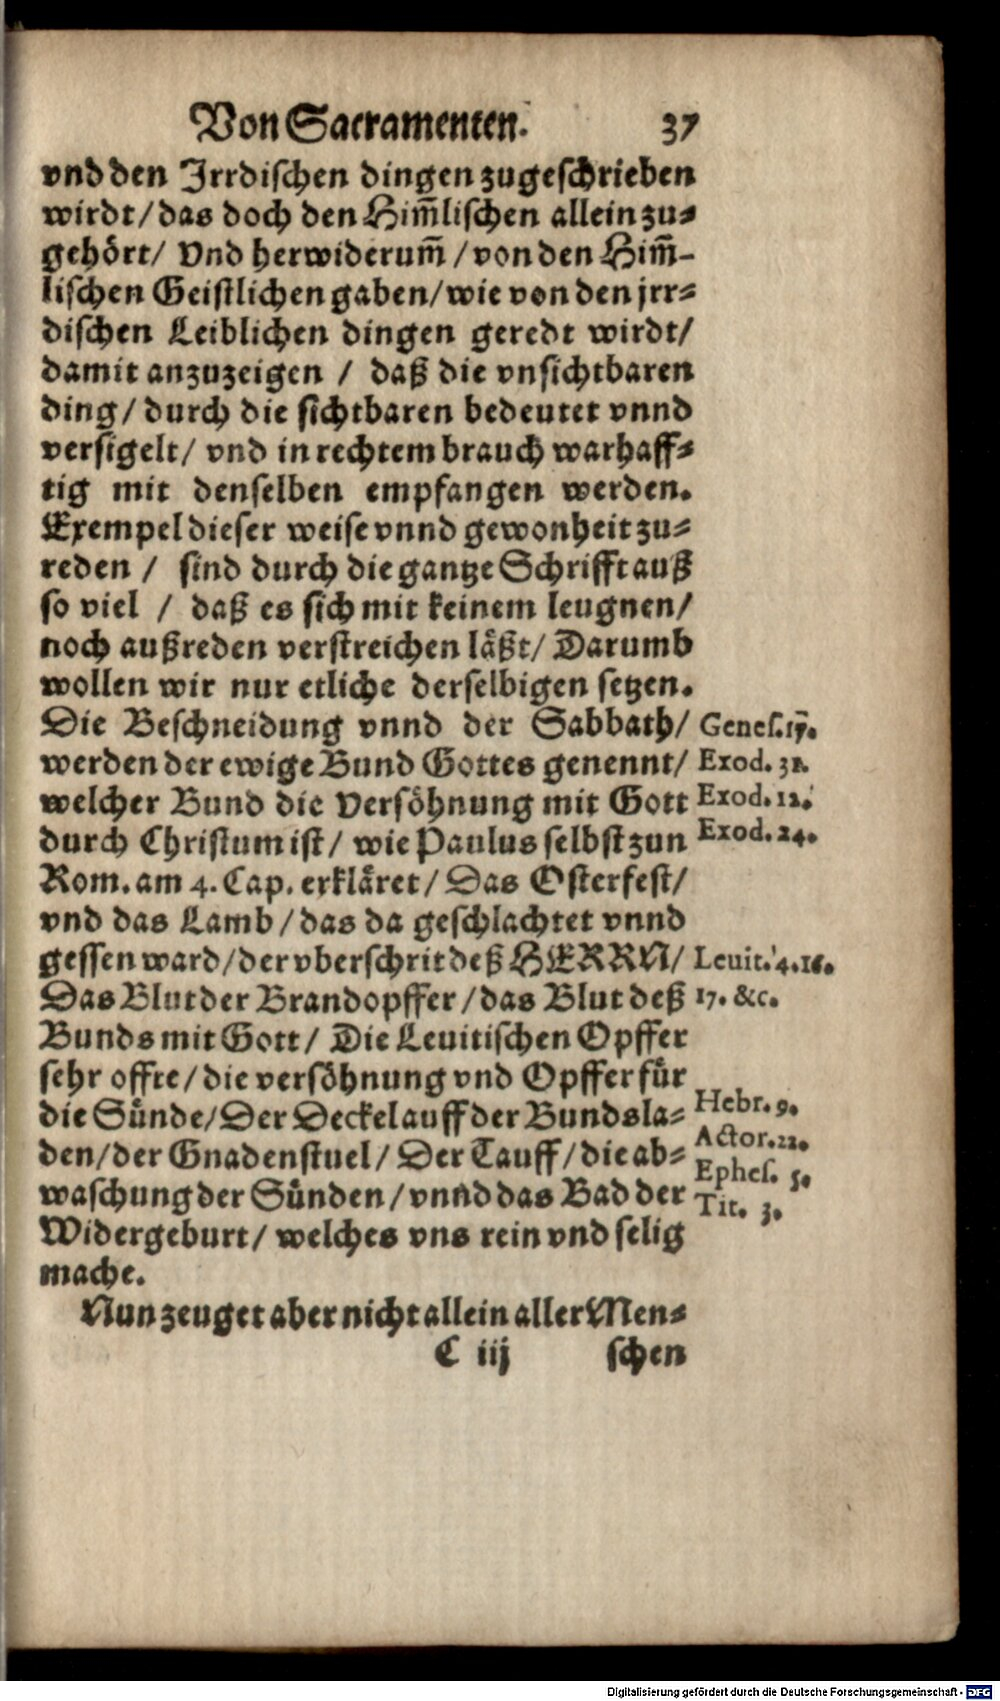 Von Sacramenten. 37
vnd den Jrrdischen dingen zugeschrieben
wirdt/das doch den Him̃lischen allein zu-
gehört/ Vnd herwiderum̃/von den Him̃-
lischen Geistlichen gaben/wie von den jrr-
dischen Leiblichen dingen geredt wirdt/
damit anzuzeigen / daß die vnsichtbaren
ding/durch die sichtbaren bedeutet vnnd
versigelt/ vnd in rechtem brauch warhaff-
tig mit denselben empfangen werden.
Exempel dieser weise vnnd gewonheit zu-
reden / sind durch die gantze Schrifft auß
so viel / daß es sich mit keinem leugnen/
noch außreden verstreichen läßt/ Darumb
wollen wir nur etliche derselbigen setzen.
Die Beschneidung vnnd der Sabbath/ Genes.17.
werden der ewige Bund Gottes genennt/ Exod. 31.
welcher Bund die Versöhnung mit Gott Exod. 12.
durch Christum ist/ wie Paulus selbst zun Exod. 24.
Rom. am 4. Cap. erkläret/ Das Osterfest/
vnd das Lamb/das da geschlachtet vnnd
gessen ward/der vberschrit deß HERRN/ Leuit. 4.16.
Das Blut der Brandopffer/das Blut deß 17. &c.
Bunds mit Gott/ Die Leuitischen Opffer
sehr offte/die versöhnung vnd Opffer für
die Sünde/Der Deckel auff der Bundsla- Hebr. 9.
den/der Gnadenstuel/ Der Tauff/die ab- Actor.22.
waschung der Sünden/vnnd das Bad der Ephes. 5.
Widergeburt/ welches vns rein vnd selig Tit. 3.
mache.
Nun zeuget aber nicht allein aller Men-
C iij schen
Digitalisierung gefördert durch die Deutsche Forschungsgemeinschaft - DFG